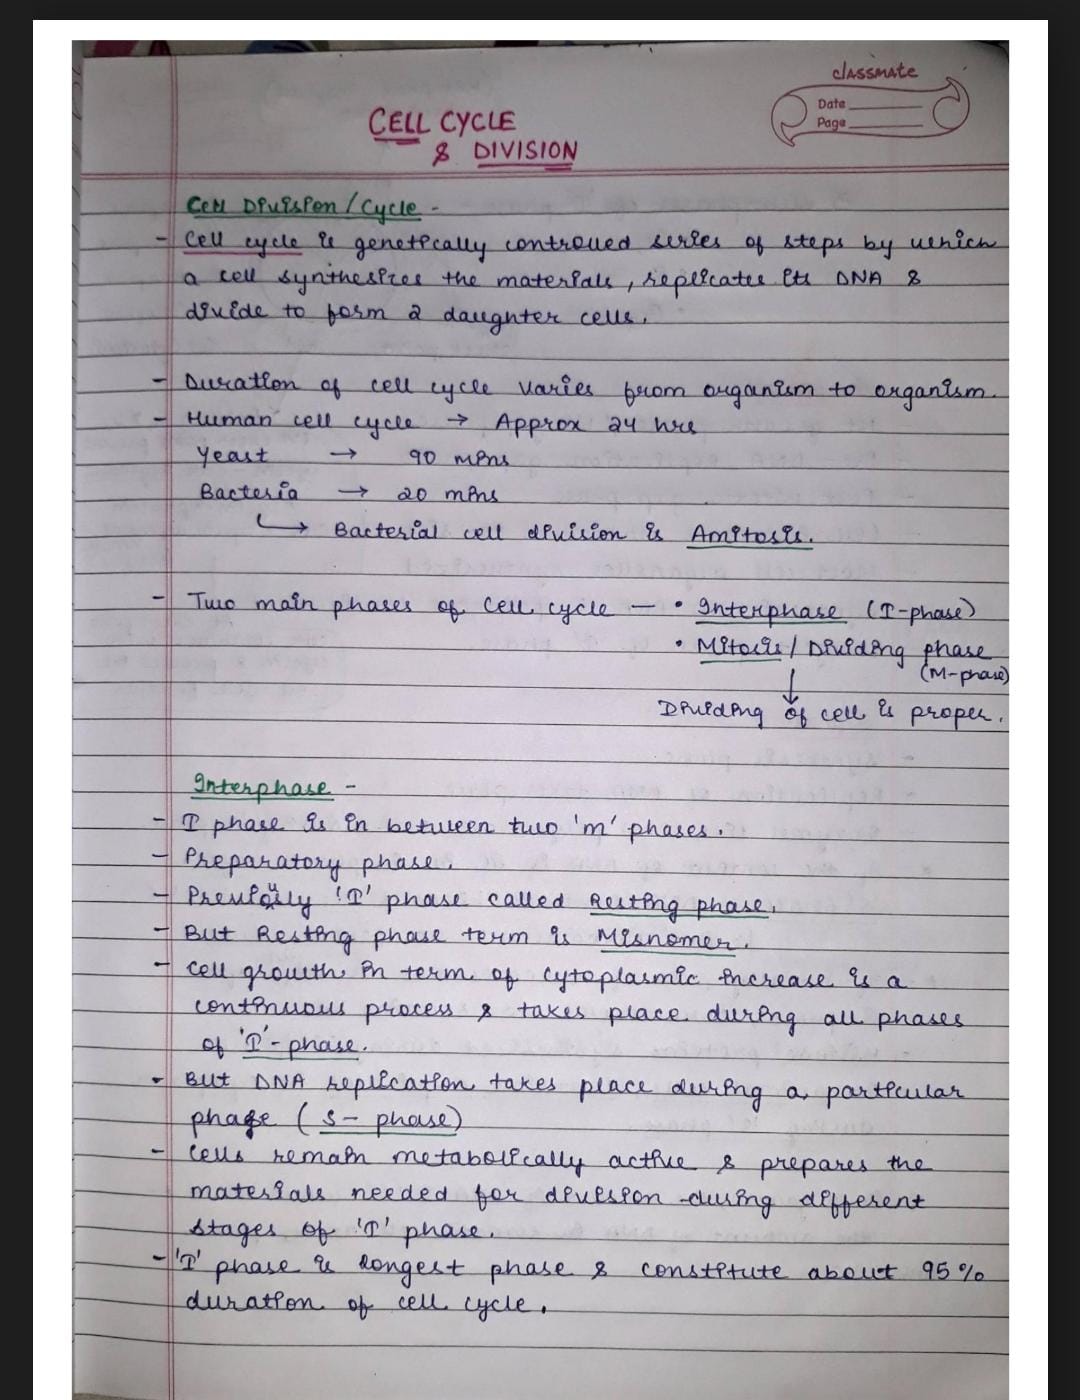 classmate
Date
Page
CELL CYCLE
& DIVISION
Cell Division / Cycle -
- Cell cycle is genetically controlled series of steps by which
a cell synthesizes the materials, replicates its DNA &
divide to form 2 daughter cells.
- Duration of cell cycle varies from organism to organism.
- Human cell cycle → Approx 24 hrs
Yeast → 90 mins
Bacteria → 20 mins
↳ Bacterial cell division is Amitosis.
- Two main phases of cell cycle — • Interphase (I-phase)
• Mitosis / Dividing phase
(M-phase)
↓
Dividing of cell is proper.
Interphase -
- I phase is in between two 'm' phases.
- Preparatory phase.
- Previously 'I' phase called Resting phase.
- But Resting phase term is Misnomer.
- cell growth in term of cytoplasmic increase is a
continuous process & takes place during all phases
of 'I'-phase.
- But DNA replication takes place during a particular
phase ( S - phase)
- Cells remain metabolically active & prepares the
materials needed for division during different
stages of 'I' phase.
- 'I' phase is longest phase & constitute about 95%
duration of cell cycle.